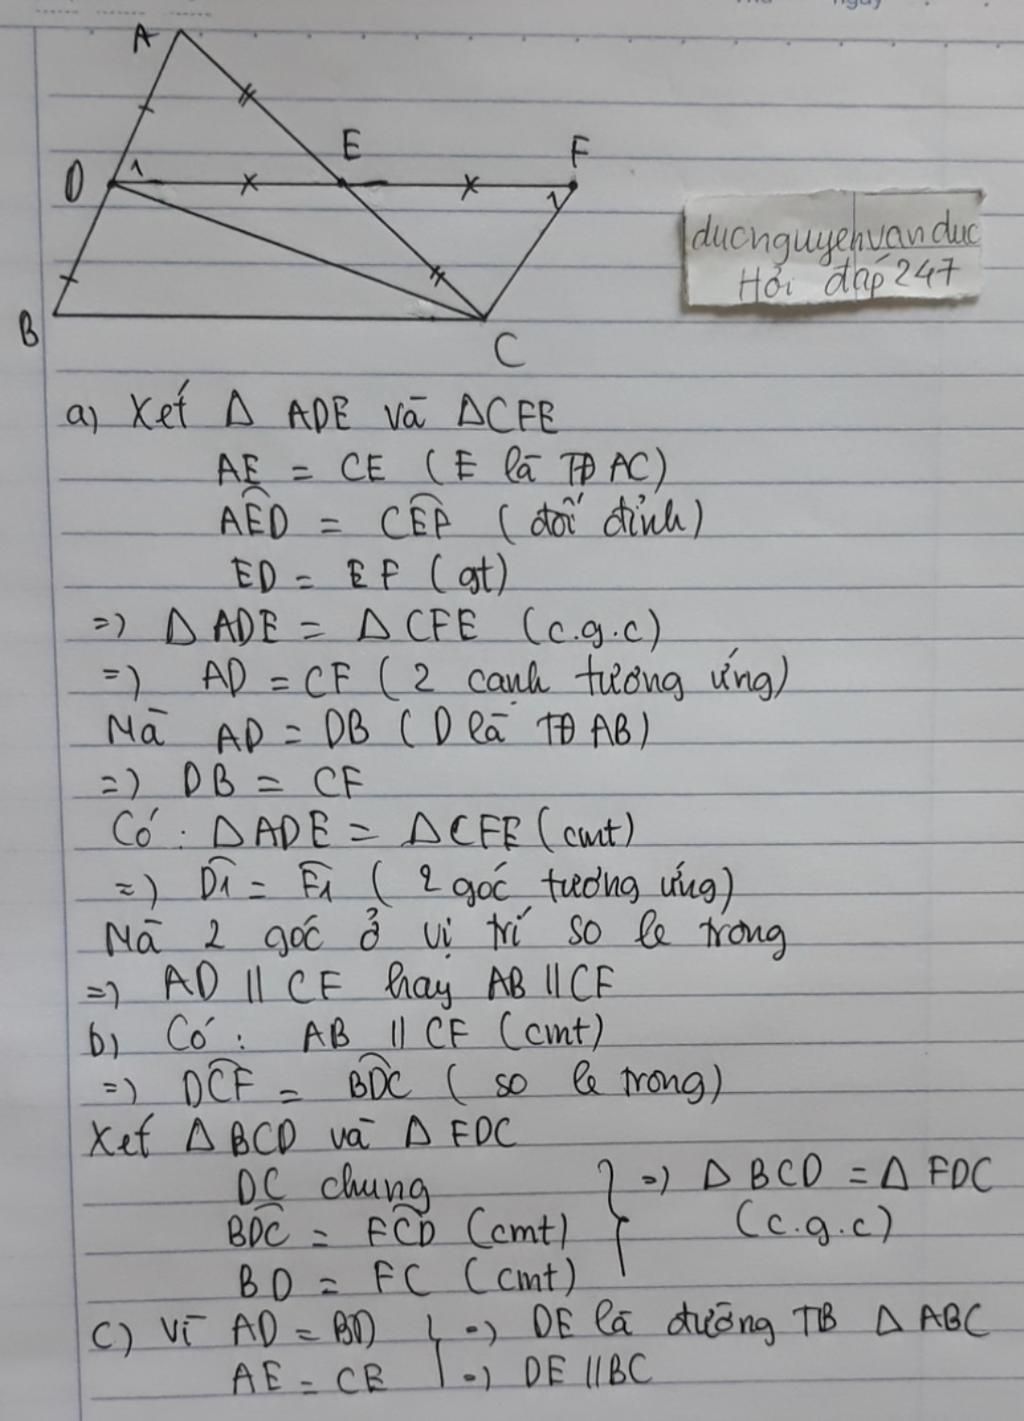 A
E
F
D
1
1
B
C
ducnguyenvanduc
Hỏi đáp 247
a) Xét Δ ADE và ΔCFE
AE = CE (E là TĐ AC)
AÊD = CÊP (đối đỉnh)
ED = EF (gt)
=) Δ ADE = Δ CFE (c.g.c)
=) AD = CF (2 cạnh tương ứng)
Mà AD = DB (D là TĐ AB)
=) DB = CF
Có: ΔADE = ΔCFE (cmt)
=) D̂1 = F̂1 (2 góc tương ứng)
Mà 2 góc ở vị trí so le trong
=) AD || CF hay AB || CF
b) Có: AB || CF (cmt)
=) DĈF = BD̂C (so le trong)
Xét Δ BCD và Δ FDC
DC chung
=) Δ BCD = Δ FDC
BD̂C = FĈD (cmt)
(c.g.c)
BD = FC (cmt)
c) Vì AD = BD =) DE là đường TB Δ ABC
AE = CE =) DE || BC